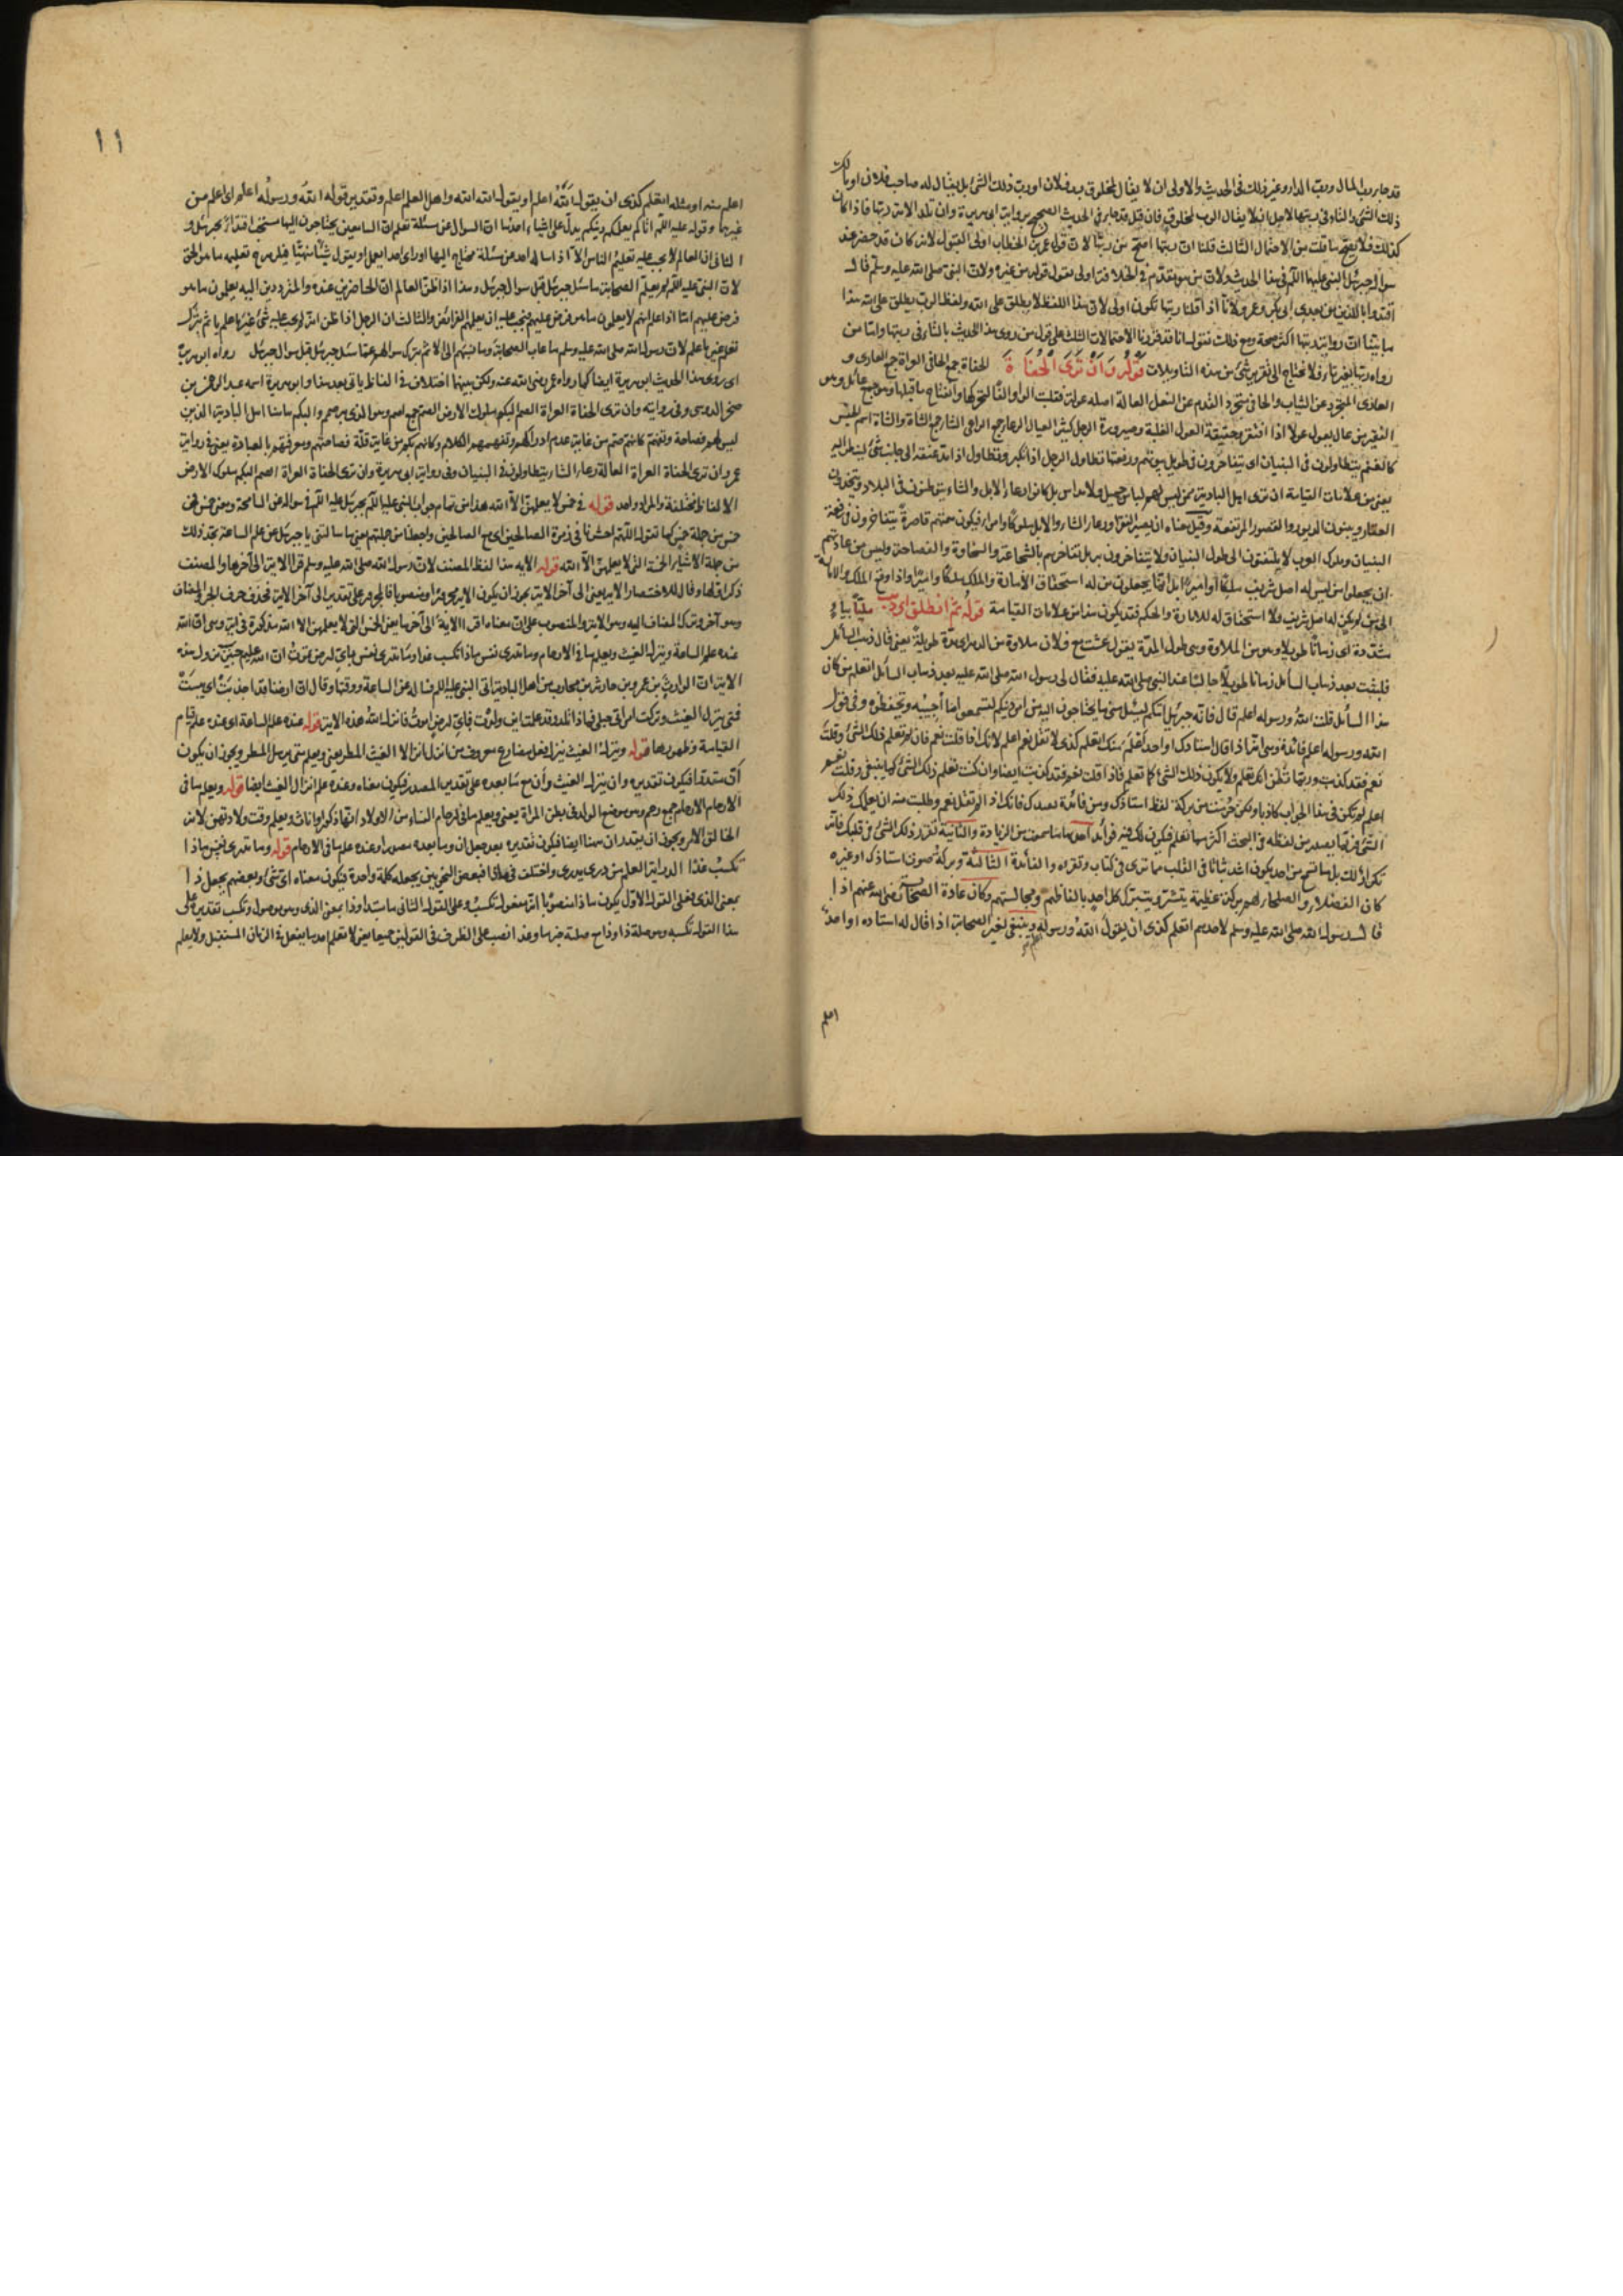 قد جاء رب المال ورب الدار وغير ذلك في الحديث والاولى ان لا يقال لمخلوق رب فلان او رب ذلك الشئ بل يقال له صاحب فلان او مالك
ذلك الشئ والتاء في ربتها لاجل ان لا يقال الرب لمخلوق فان قيل قد جاء في الحديث الصحيح برواية ابي هريرة وان تلد الامة ربها فاذا كان
كذلك فلا يصح ما قلت من الاحتمال الثالث قلنا ان ربتها اصح من ربها لان قول عمر بن الخطاب اولى بالقبول لانه كان قد حضر عند
سؤال جبرئيل النبي عليهما السلام في هذا الحديث ولان من هو مقدم في الخلافة اولى بقبول قوله من غيره ولان النبي صلى الله عليه وسلم قال
اقتدوا باللذين من بعدي ابي بكر وعمر ولانا اذا قلنا ربتها تكون اولى لان هذا اللفظ لا يطلق على الله ولفظ الرب يطلق على الله هذا
ما بيننا ان رواية ربتها اكثر صحة ومع ذلك نقول انا قد قررنا الاحتمالات الثلث على قول من روى هذا الحديث بالتاء في ربتها واما من
رواه ربها بغير تاء فلا يحتاج الى تقرير شئ من هذه التاويلات قوله وَاَنْ تَرَى الْحُفَاةَ الحفاة جمع الحافي العراة جمع العاري و
العاري المتجرد عن الثياب والحافي متجرد القدم عن النعل العالة اصله عولة فقلبت الواو الفا لتحركها وانفتاح ما قبلها وهو جمع عائل وهو
الفقير من عال يعول عولا اذا افتقر وحقيقة العول الغلبة وصيرورة الرجل كثير العيال الرعاء جمع الراعي الشاء جمع الشاة والشاة اسم الجنس
كالغنم يتطاولون في البنيان اى يتفاخرون في طويل بيوتهم ورفعتها تطاول الرجل اذا تكبر وتطاول اذا مد عنقه الى جانب شئ لينظر اليه
يعني من علامات القيامة ان ترى اهل البادية ممن ليس لهم لباس جميل ولا مداس بل كانوا رعاء الابل والشاء يتوطنون في البلاد ويتخذون
العقار ويبنون الدور والقصور المرتفعة وقيل معناه ان يصير الفقراء ورعاء الشاء والابل ملوكا وامراء فيكون همتهم قاصرة يتفاخرون في رفعة
البنيان وملوك العرب لا يلتفتون الى طول البنيان ولا يتفاخرون به بل تفاخرهم بالشجاعة والسخاوة والفصاحة وليس من عادتهم
ان يجعلوا من ليس له اصل شريف ملكا او اميرا بل انما يجعلون من له استحقاق الامارة والملك ملكا واميرا واذا وقع الملك والامارة
الى من لم يكن له اصل شريف ولا استحقاق له للامارة والحكم فقد يكون هذا من علامات القيامة قوله ثم انطلق اى ذهب مليّا بياء
مشددة اى زمانا طويلا وهو من الملاوة وهى طول المدة يقول عشت مع فلان ملاوة من الدهر اى مدة طويلة يعني قال ذهب السائل
فلبثت بعد ذهاب السائل زمانا طويلا جالسا عند النبي صلى الله عليه فقال لي رسول الله صلى الله عليه بعد ذهاب السائل اتعلم من كان
هذا السائل قلت الله ورسوله اعلم قال فانه جبرئيل اتيكم ليسئل مني ما يحتاجون اليه من امر دينكم لتسمعوا ما اجيبه وتحفظوه وفي قول
الله ورسوله اعلم فائدة وهى انه اذا قال استاذك او احد اعلم منك اتعلم كذى لا تقل نعم اعلم لانك اذا قلت نعم فان لم تعلم ذلك الشئ وقلت
نعم فقد كذبت وربما تظن انك تعلم ولا يكون ذلك الشئ كما تعلم فاذا قلت نعم فقد كذبت ايضا وان كنت تعلم ذلك الشئ كما ينبغي وقلت نعم
اعلم لم تكن في هذا الجواب كاذبا ولكن حرمت من بركة لفظ استاذك ومن فائدة بعدك فانك اذا لم تقل نعم وطلبت منه ان يعلمك ذلك
الشئ فربما يصدر من لفظه في البحث اكثر مما تعلم فيكون لك فيه فوائد احدها ما سمعت من الزيادة والثانية تقرر ذلك الشئ في قلبك فانه
تكرار لك بل ما تسمع من احد يكون اشد ثباتا في القلب مما ترى في كتاب وتقراه والفائدة الثالثة وبركة صوت استاذك او غيره
كان الفضلاء والصلحاء لهم بركة عظيمة يتشرف ويتبرك كل احد بالفاظهم ومجالستهم وكان عادة الصحابة رضى الله عنهم اذا
قال رسول الله صلى الله عليه وسلم لاحدهم اتعلم كذى ان يقول الله ورسوله وينبغي لغير الصحابة اذا قال له استاده او احد
اعلم
اعلم
١١
اعلم منه او مثله اتعلم كذى ان يقول الله اعلم او يقول الله الله واهل العلم اعلم وتقدير قوله الله ورسوله اعلم اى اعلم من
غيرهما وقوله عليه السلام اتاكم يعلمكم دينكم يدل على اشياء احدها ان السؤال عن مسئلة تعلم ان السامعين يحتاجون اليها مستحب اقتداء بجبرئيل و
الثاني ان العالم لا يجب عليه تعليم الناس الا اذا ساله احد عن مسئلة محتاج اليها او راى احدا يعمل او يقول شيئا منهيا فليرده وتعليمه ما هو الحق
لان النبي عليه السلام لم يعلم الصحابة ما سئل جبرئيل قبل سؤال جبرئيل وهذا اذا ظن العالم ان الحاضرين عنده والمترددين اليه يعلمون ما هو
فرض عليهم اما اذا علم انهم لا يعلمون ما هو فرض عليهم يجب عليه ان يعلمهم الفرائض والثالث ان الرجل اذا ظن انه لم يجب عليه شئ غير ما علم ياثم بترك
تعلم غير ما علم لان رسول الله صلى الله عليه وسلم ما عاب الصحابة وما نسبهم الى الاثم بترك سؤالهم عما سئل جبرئيل قبل سؤال جبرئيل رواه ابو هريرة
اى روى هذا الحديث ابو هريرة ايضا كما رواه عمر رضى الله عنه ولكن بينهما اختلاف في الفاظ ياتي بعد هذا وابو هريرة اسمه عبد الرحمن بن
صخر الدوسي وفي روايته وان ترى الحفاة العراة الصم البكم ملوك الارض الصم جمع اصم وهو الذي به صمم والبكم ههنا اهل البادية الذين
ليس لهم فصاحة وتفهم كانهم صم من غاية عدم ادراكهم وتفهمهم الكلام وكانهم بكم من غاية قلة فصاحتهم ومعرفتهم بالعبادة يعني في رواية
عمر وان ترى الحفاة العراة العالة رعاء الشاء يتطاولون في البنيان وفي رواية ابي هريرة وان ترى الحفاة العراة الصم البكم ملوك الارض
الالفاظ مختلفة والمراد واحد قوله في خمس لا يعلمهن الا الله هذا من تمام جواب النبي عليه السلام بجبرئيل عليه السلام في سؤاله عن الساعة ومعنى خمس نحن
خمس من جملة خمس كما تقول اللهم احشرنا في زمرة الصالحين اى مع الصالحين واجعلنا من جملتهم يعني ما سالتني يا جبرئيل عن علم الساعة نجد ذلك
من جملة الاشياء الخمسة التي لا يعلمهن الا الله قوله الآية هذا لفظ المصنف لان رسول الله صلى الله عليه وسلم قرا الآية الى آخرها والمصنف
ذكر اولها وقال للاختصار الآية يعني الى آخر الآية يجوز ان يكون الآية مجرورا ومنصوبا فالمجرور على تقدير الى آخر الآية فحذف حرف الجر والمضاف
وهو آخر وترك المضاف اليه وهو الآية والمنصوب على ان معناه اقرا الآية الى آخرها يعني الخمس التي لا يعلمهن الا الله مذكورة في آية وهى ان الله
عنده علم الساعة وينزل الغيث ويعلم ما في الارحام وما تدري نفس ماذا تكسب غدا وما تدري نفس باي ارض تموت ان الله عليم خبير نزول هذه
الآية ان الوارث بن عمرو بن حارثة بن محارب من اهل البادية اتى النبي عليه السلام فساله عن الساعة ووقتها وقال ان ارضنا قد اجدبت اى يبست
فمتى ينزل الغيث وتركت امراتي حبلى فماذا تلد وقد علمت اين ولدت فباي ارض اموت فانزل الله هذه الآية قوله عنده علم الساعة اى عنده علم قيام
القيامة وظهورها قوله وينزل الغيث ينزل فعل مضارع معروف من انزل انزالا الغيث المطر يعني ويعلم متى يرسل المطر ويجوز ان يكون
ان مقدرا فيكون تقديره وان ينزل الغيث وان مع ما بعده على تقدير المصدر فيكون معناه وعنده علم انزال الغيث ايضا قوله ويعلم ما في
الارحام الارحام جمع رحم وهو موضع الولد في بطن المراة يعني ويعلم ما في ارحام النساء من الاولاد انها ذكور او اناث ويعلم وقت ولادتهن لانه
الخالق الامر ويجوز ان يقدر ان ههنا ايضا فيكون تقديره بعد جعل ان وما بعده مصدرا وعنده علم ما في الارحام قوله وما تدري نفس ماذا
تكسب غدا الدراية العلم من درى يدري واختلف في ماذا فبعض النحويين يجعله كلمة واحدة فيكون معناه اى شئ وبعضهم يجعل ذا
بمعنى الذي فعلى القول الاول يكون ماذا منصوبا لانه مفعول تكسب وعلى القول الثاني ما مبتدا وذا بمعنى الذي وهو موصول وتكسب تقديره على
هذا القول تكسبه وهو صلة ذا وذا مع صلته خبر ما وغدا نصب على الظرف في القولين جميعا يعني لا تعلم احد ما يفعل في الزمان المستقبل ولا يعلم